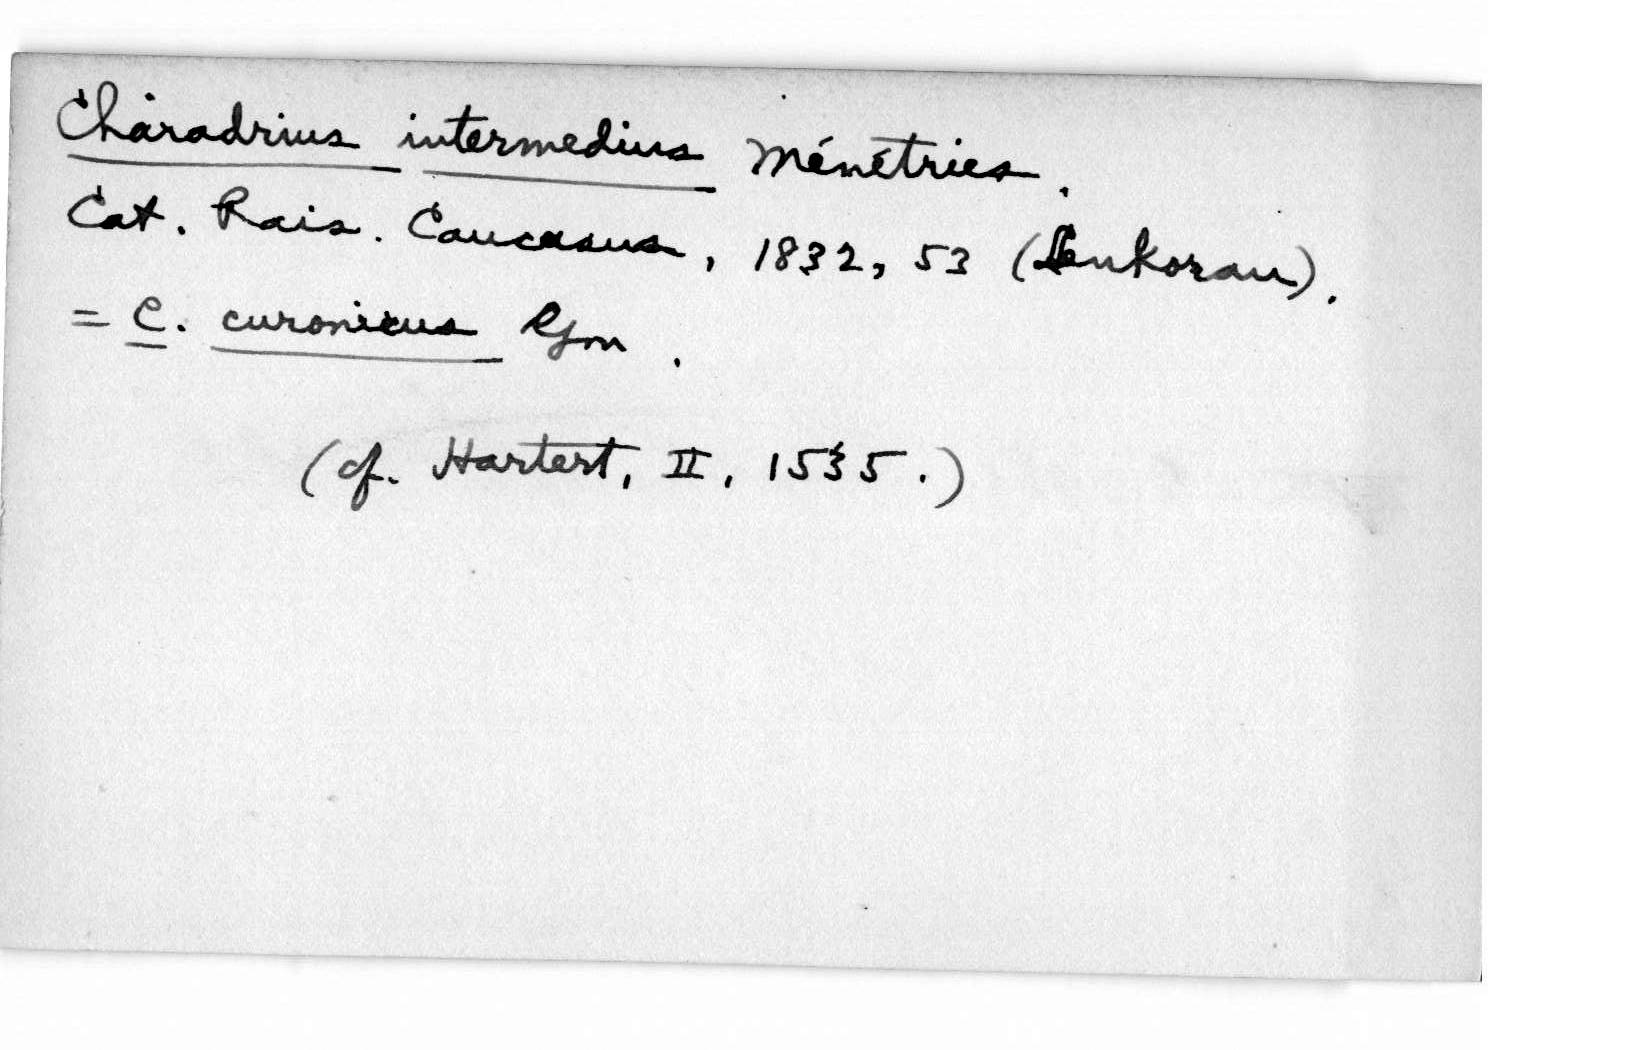 Charadrius intermedius Ménétries.
Cat. Rais. Caucasus, 1832, 53 (Lenkoran).
= C. curonicus Gm.
(cf. Hartert, II, 1535.)